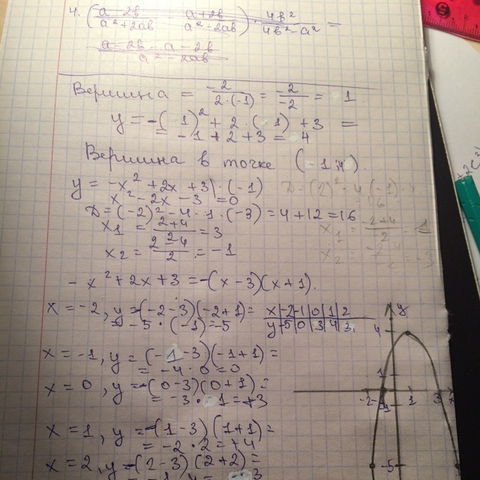 4. (a-2b/a²+2ab - a+2b/a²-2ab) · 4b²/4b²-a² =
a-2b-a-2b/a²-2ab
Вершина = -2/2·(-1) = -2/-2 = 1
y = -(1)² + 2·(1) + 3 =
= -1 + 2 + 3 = 4
Вершина в точке (1;4)
y = -x² + 2x + 3 | ·(-1)
x² - 2x - 3 = 0
D = (-2)² - 4·1·(-3) = 4 + 12 = 16
x₁ = 2+4/2 = 3
x₂ = 2-4/2 = -1
-x² + 2x + 3 = -(x-3)(x+1).
x = -2, y = -(-2-3)(-2+1) =
= -5·(-1) = -5
x -2 -1 0 1 2
y -5 0 3 4 3
x = -1, y = -(-1-3)(-1+1) =
= -4·0 = 0
x = 0, y = -(0-3)(0+1) =
= -3·1 = +3
x = 1, y = -(1-3)(1+1) =
= -2·2 = +4
x = 2, y = -(2-3)(2+2) =
y
4
1
-2
1
3
-5